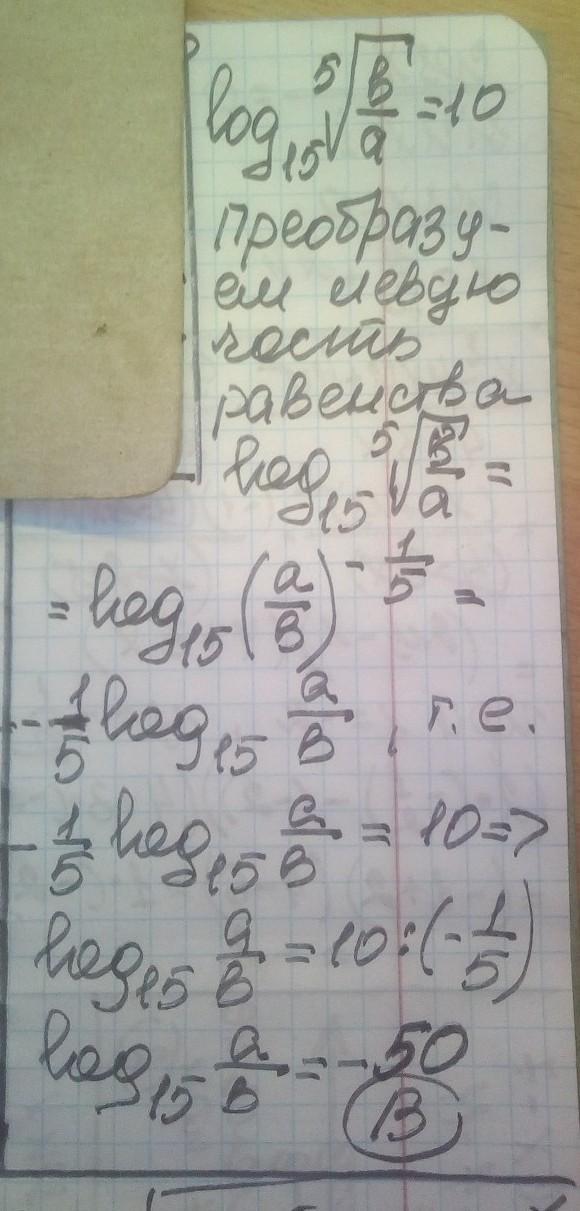 log₁₅ ⁵√(в/a) = 10
Преобразу-
ем левую
часть
равенства
log₁₅ ⁵√(в/a) =
= log₁₅ (a/в)^(-1/5) =
-1/5 log₁₅ a/в, т.е.
-1/5 log₁₅ a/в = 10 =>
log₁₅ a/в = 10 : (-1/5)
log₁₅ a/в = -50
В